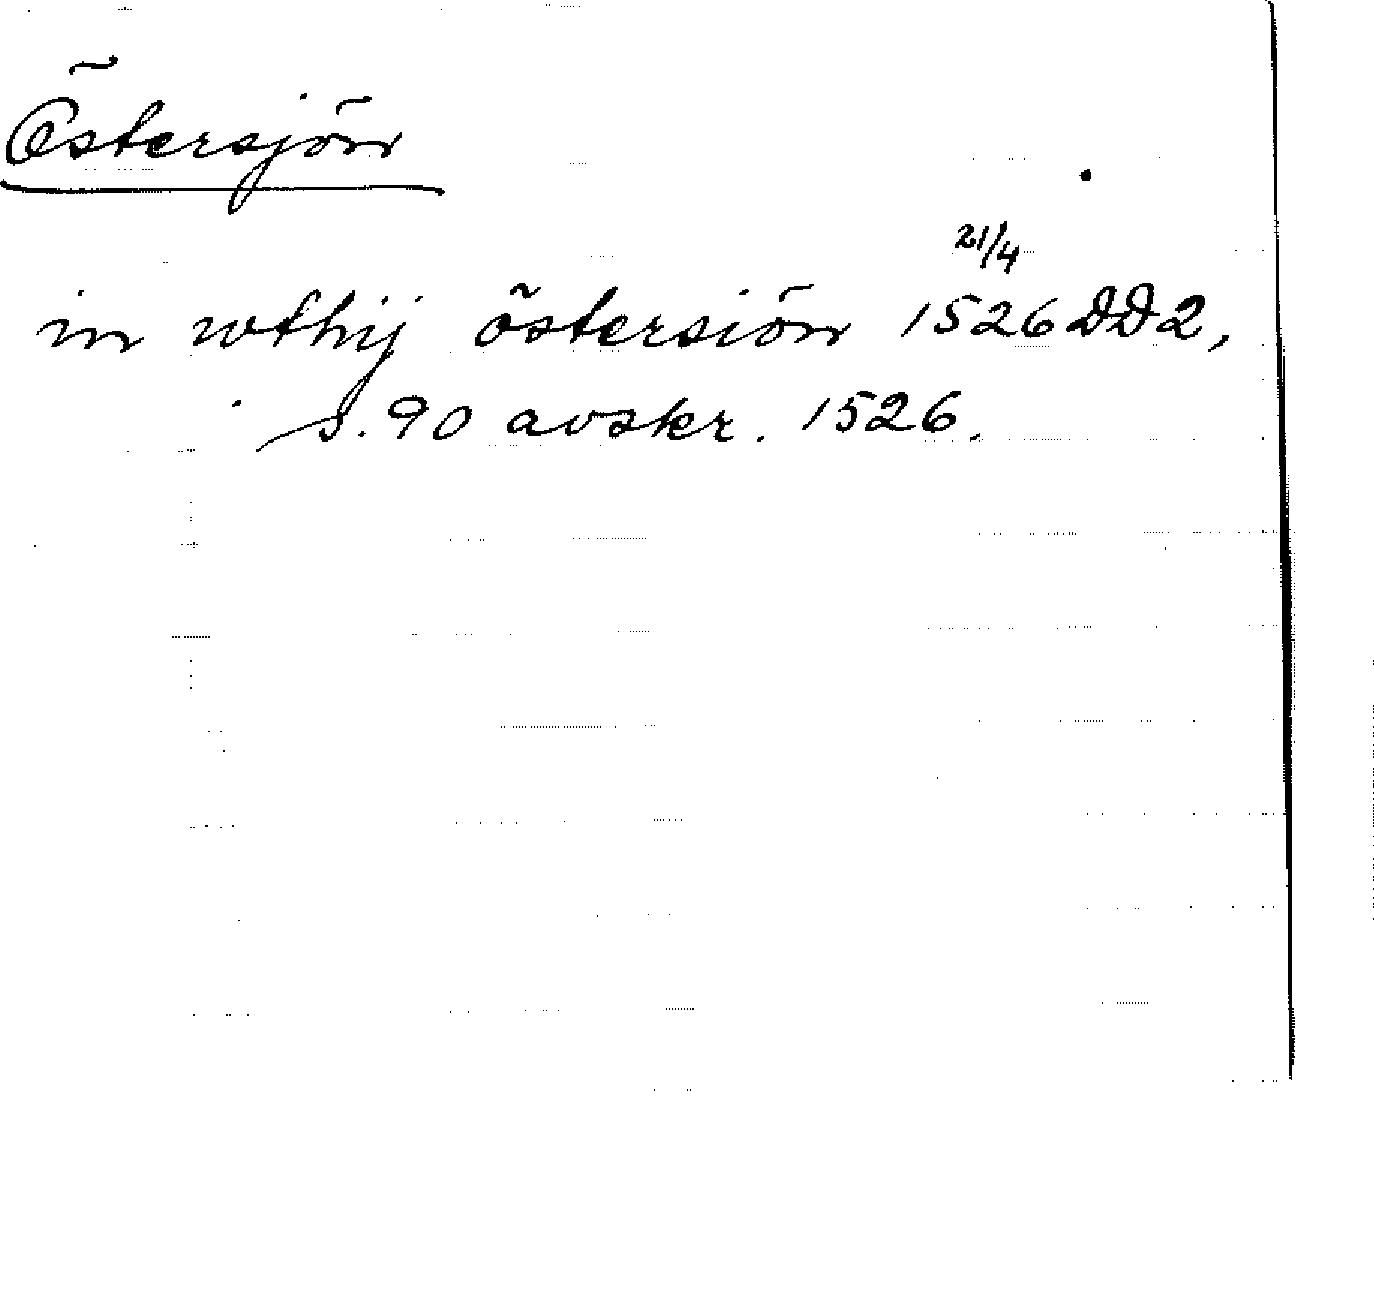 Östersjön
21/4
in wthij östersiön 1526 DD2,
s. 90 avskr. 1526.